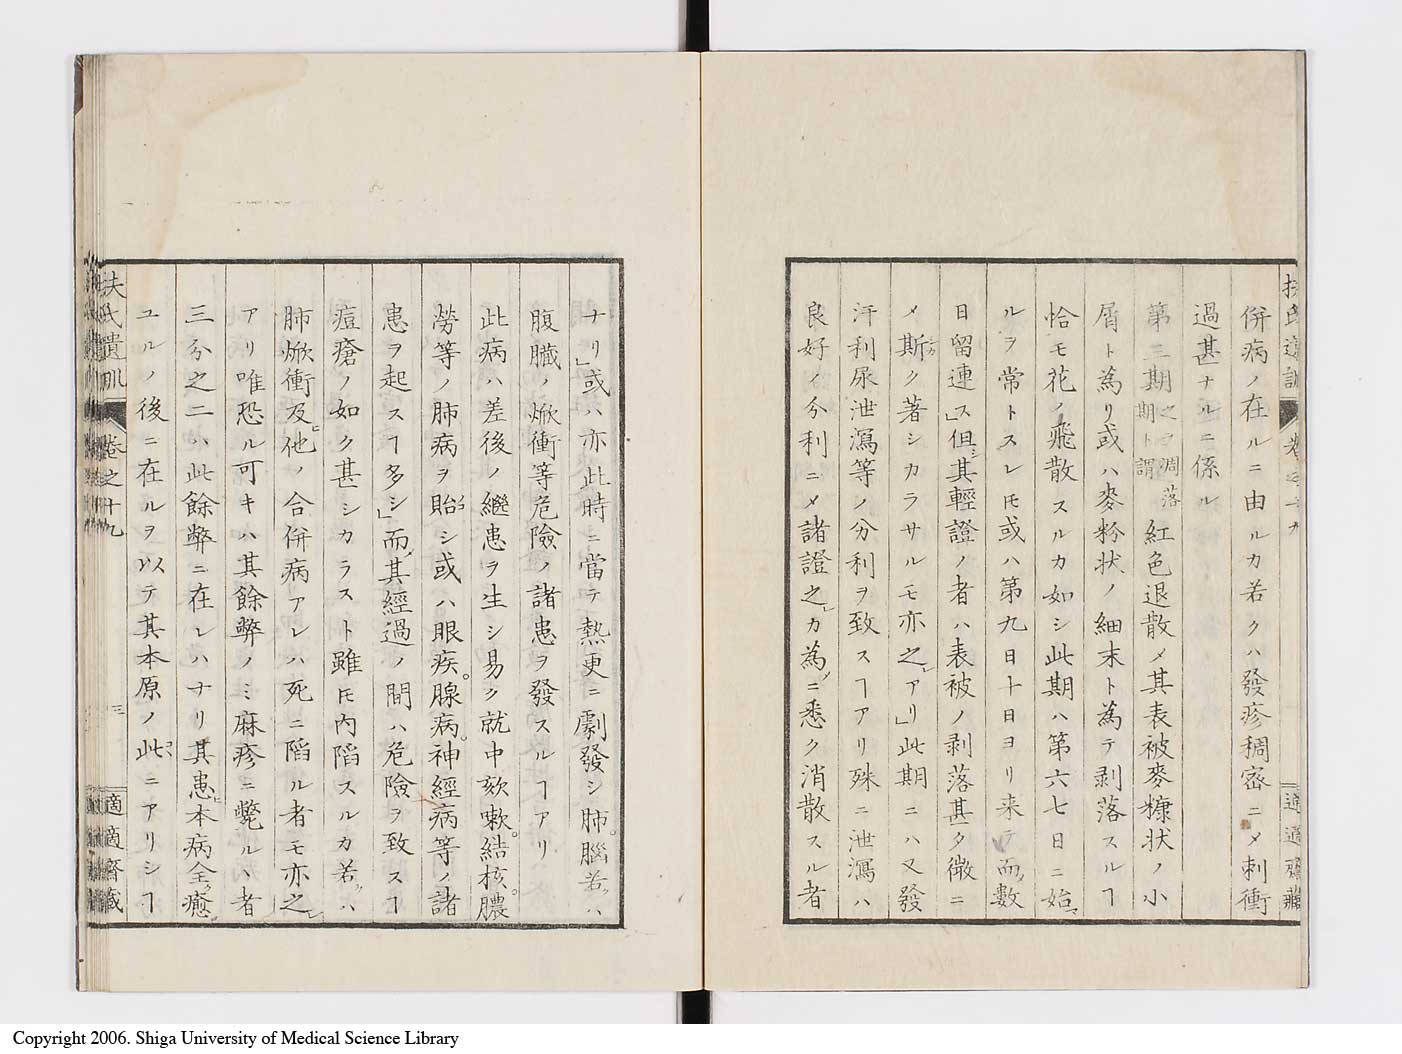 併病ノ在ルニ由ルカ若クハ發疹稠密ニメ刺衝
過甚ナルニ係ル
第三期之ヲ凋落期ト謂紅色退散メ其表被麥糠状ノ小
屑ト為リ或ハ麥粉状ノ細末ト為テ剥落スルヿ
恰モ花ノ飛散スルカ如シ此期ハ第六七日ニ始
ルヲ常トスレ𪜈或ハ第九日十日ヨリ来テ而數
日留連ス」但其輕證ノ者ハ表被ノ剥落甚タ微ニ
メ斯ク著シカラサルモ亦之アリ」此期ニハ又發
汗利尿泄瀉等ノ分利ヲ致スヿアリ殊ニ泄瀉ハ
良好ノ分利ニメ諸證之カ為ニ悉ク消散スル者
ナリ」或ハ亦此時ニ當テ熱更ニ劇發シ肺。腦若ハ
腹臓ノ焮衝等危險ノ諸患ヲ發スルヿアリ
此病ハ差後ノ繼患ヲ生シ易ク就中欬嗽。結核。膿
勞等ノ肺病ヲ貽シ或ハ眼疾。腺病。神經病等ノ諸
患ヲ起スヿ多シ」而其經過ノ間ハ危險ヲ致スヿ
痘瘡ノ如ク甚シカラスト雖𪜈内陷スルカ若ハ
肺焮衝及他ノ合併病アレハ死ニ陷ル者モ亦之
アリ唯恐ル可キハ其餘弊ノミ麻疹ニ斃ルヽ者
三分之二ハ此餘弊ニ在レハナリ其患本病全癒
ユルノ後ニ在ルヲ以テ其本原ノ此ニアリシヿ
扶氏遺訓 卷之十九 三 適適齋藏